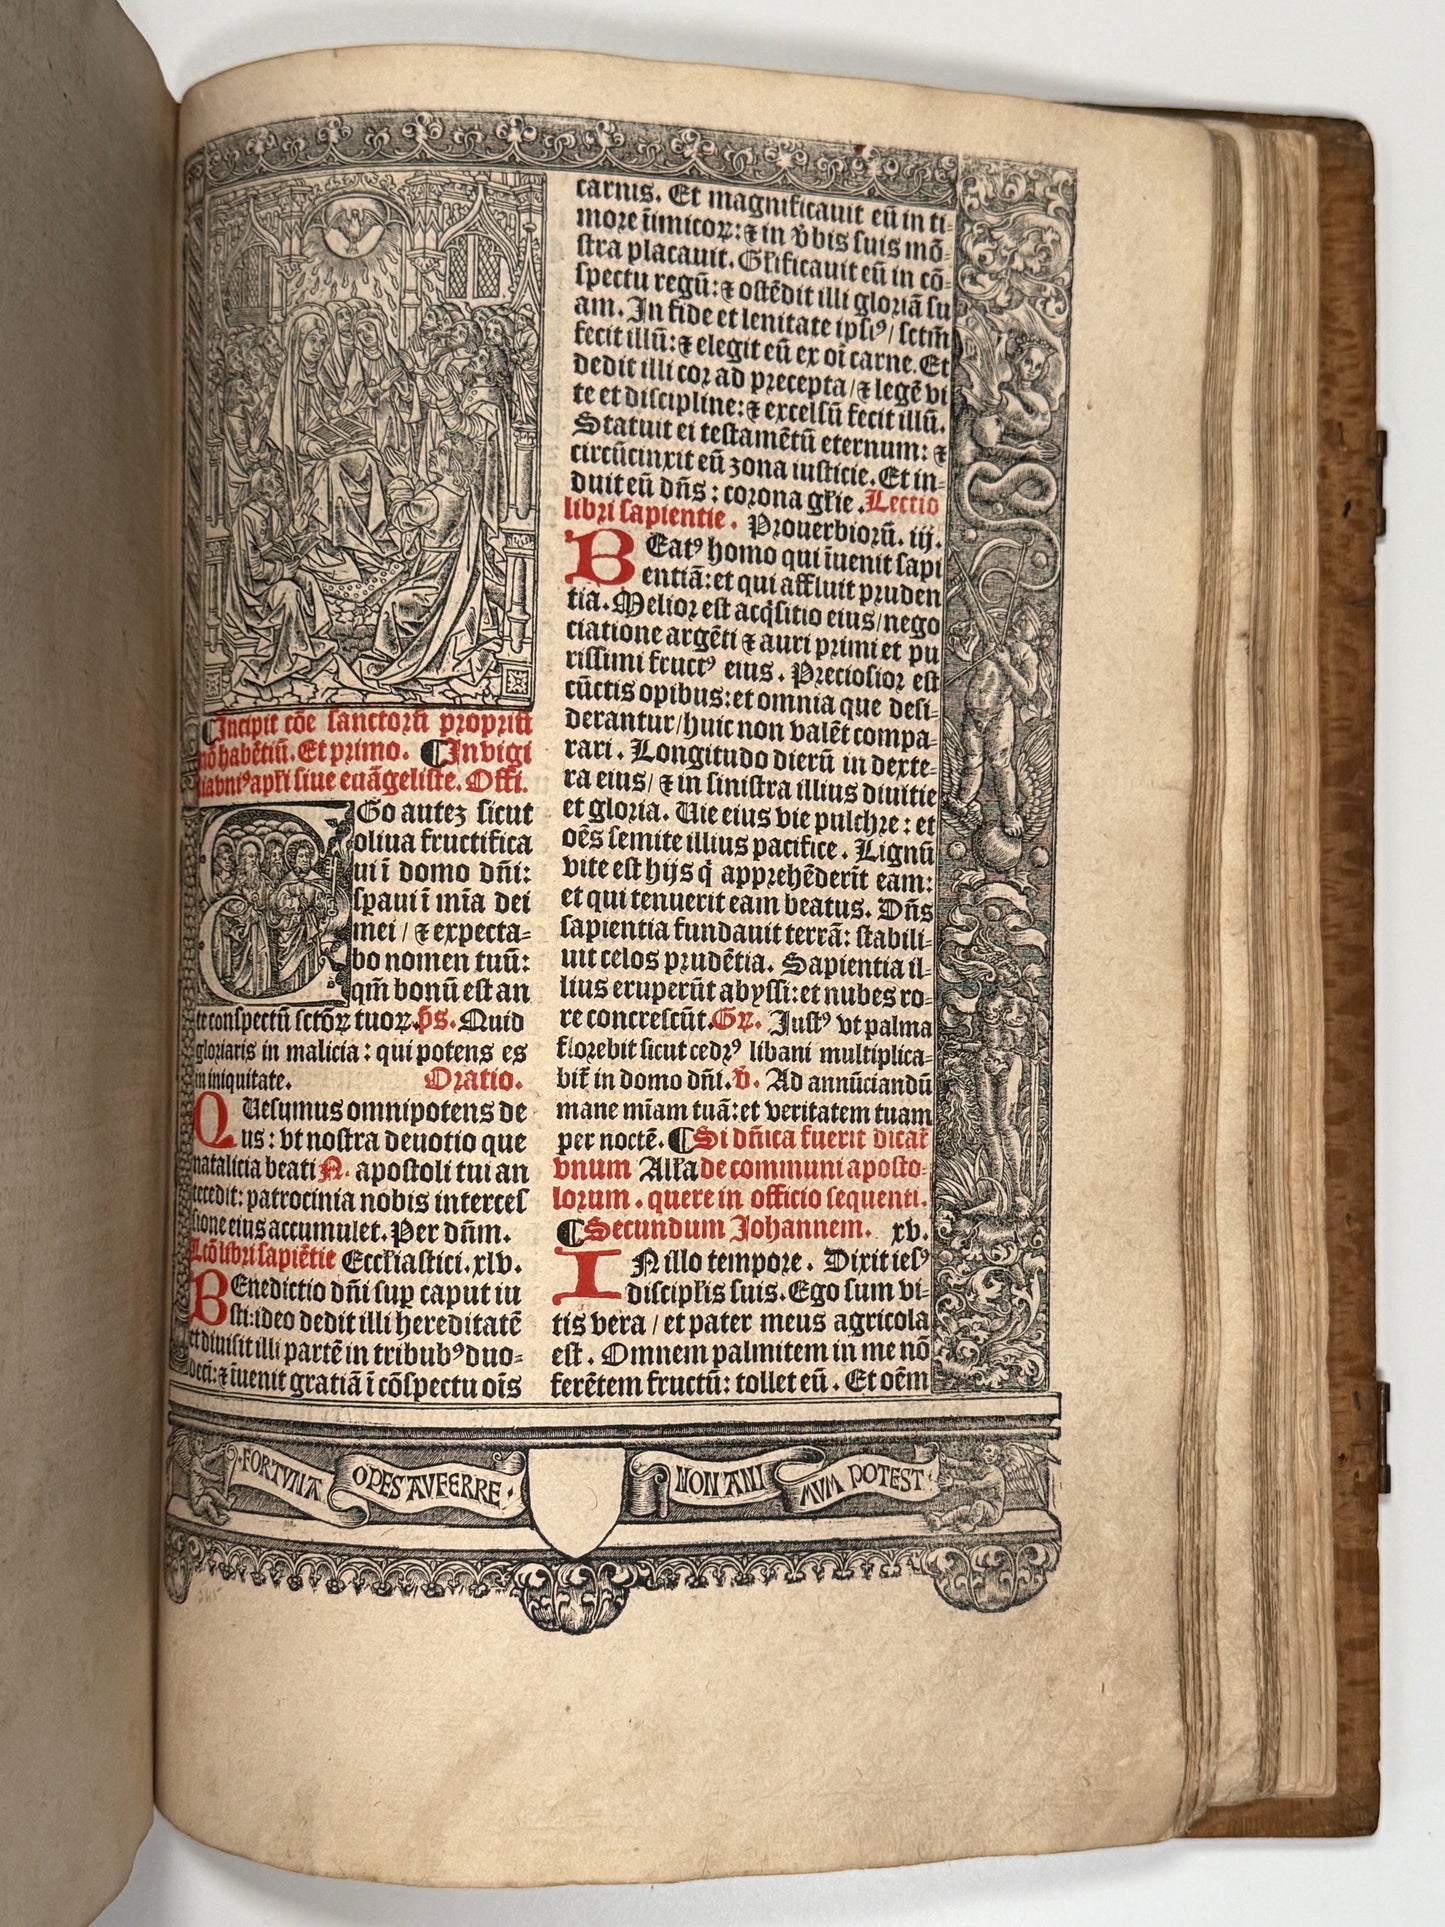 ¶Incipit cõe sanctorũ propriũ
nõ habẽtiũ. Et primo. ¶In vigi
lia vniꝰ apl'i siue euãgeliste. Offi.
EGo autez sicut
oliua fructifica
ui ĩ domo dñi:
speraui ĩ mĩa dei
mei / ⁊ expecta-
bo nomen tuũ:
qm̃ bonũ est an
te conspectũ sctõꝝ tuoꝝ. p̃s. Quid
gloriaris in malicia: qui potens es
in iniquitate. Oratio.
QUesumus omnipotens de
us: vt nostra deuotio que
natalicia beati N. apostoli tui an
tecedit: patrocinia nobis interces
sione eius accumulet. Per dñm.
Lcõ libri sapiẽtie Eccl'iastici. xlv.
BEnedictio dñi sup caput iu
sti: ideo dedit illi hereditatẽ
et diuisit illi partẽ in tribubꝰ duo-
deci: ⁊ ĩuenit gratiã ĩ cõspectu oĩs
carnis. Et magnificauit eũ in ti-
more ĩimicoꝝ: ⁊ in v̓bis suis mõ-
stra placauit. Gl'ificauit eũ in cõ-
spectu regũ: ⁊ ostẽdit illi gloriã su
am. In fide et lenitate ipsiꝰ / sctm̃
fecit illũ: ⁊ elegit eũ ex oĩ carne. Et
dedit illi cor ad precepta / ⁊ legẽ vi
te et discipline: ⁊ excelsũ fecit illũ.
Statuit ei testamẽtũ eternum: ⁊
circũcinxit eũ zona iusticie. Et in-
duit eũ dñs: corona gl'ie. Lectio
libri sapientie. Prouerbiorũ. iij.
BEatꝰ homo qui ĩuenit sapi
entiã: et qui affluit pruden
tia. Melior est acq̇sitio eius / nego
ciatione argẽti ⁊ auri primi et pu
rissimi fructꝰ eius. Preciosior est
cũctis opibus: et omnia que desi-
derantur / huic non valẽt compa-
rari. Longitudo dierũ in dexte-
ra eius / ⁊ in sinistra illius diuitie
et gloria. Uie eius vie pulchre: et
oẽs semite illius pacifice. Lignũ
vite est hijs q̇ apprehẽderĩt eam:
et qui tenuerit eam beatus. Dñs
sapientia fundauit terrã: stabili-
uit celos prudẽtia. Sapientia il-
lius eruperũt abyssi: et nubes ro-
re concrescũt. Gꝝ. Justꝰ vt palma
florebit sicut cedrꝰ libani multiplica-
bit̃ in domo dñi. v̓. Ad annũciandũ
mane mĩam tuã: et veritatem tuam
per noctẽ. ¶Si dñica fuerit dicat̃
vnum All'a de communi aposto-
lorum. quere in officio sequenti.
¶Secundum Johannem. xv.
IN illo tempore. Dixit iesꝰ
discipl'is suis. Ego sum vi-
tis vera / et pater meus agricola
est. Omnem palmitem in me nõ
ferẽtem fructũ: tollet eũ. Et oẽm
·FORTVNA OPES AVFERRE· NON ANI MVM POTEST·